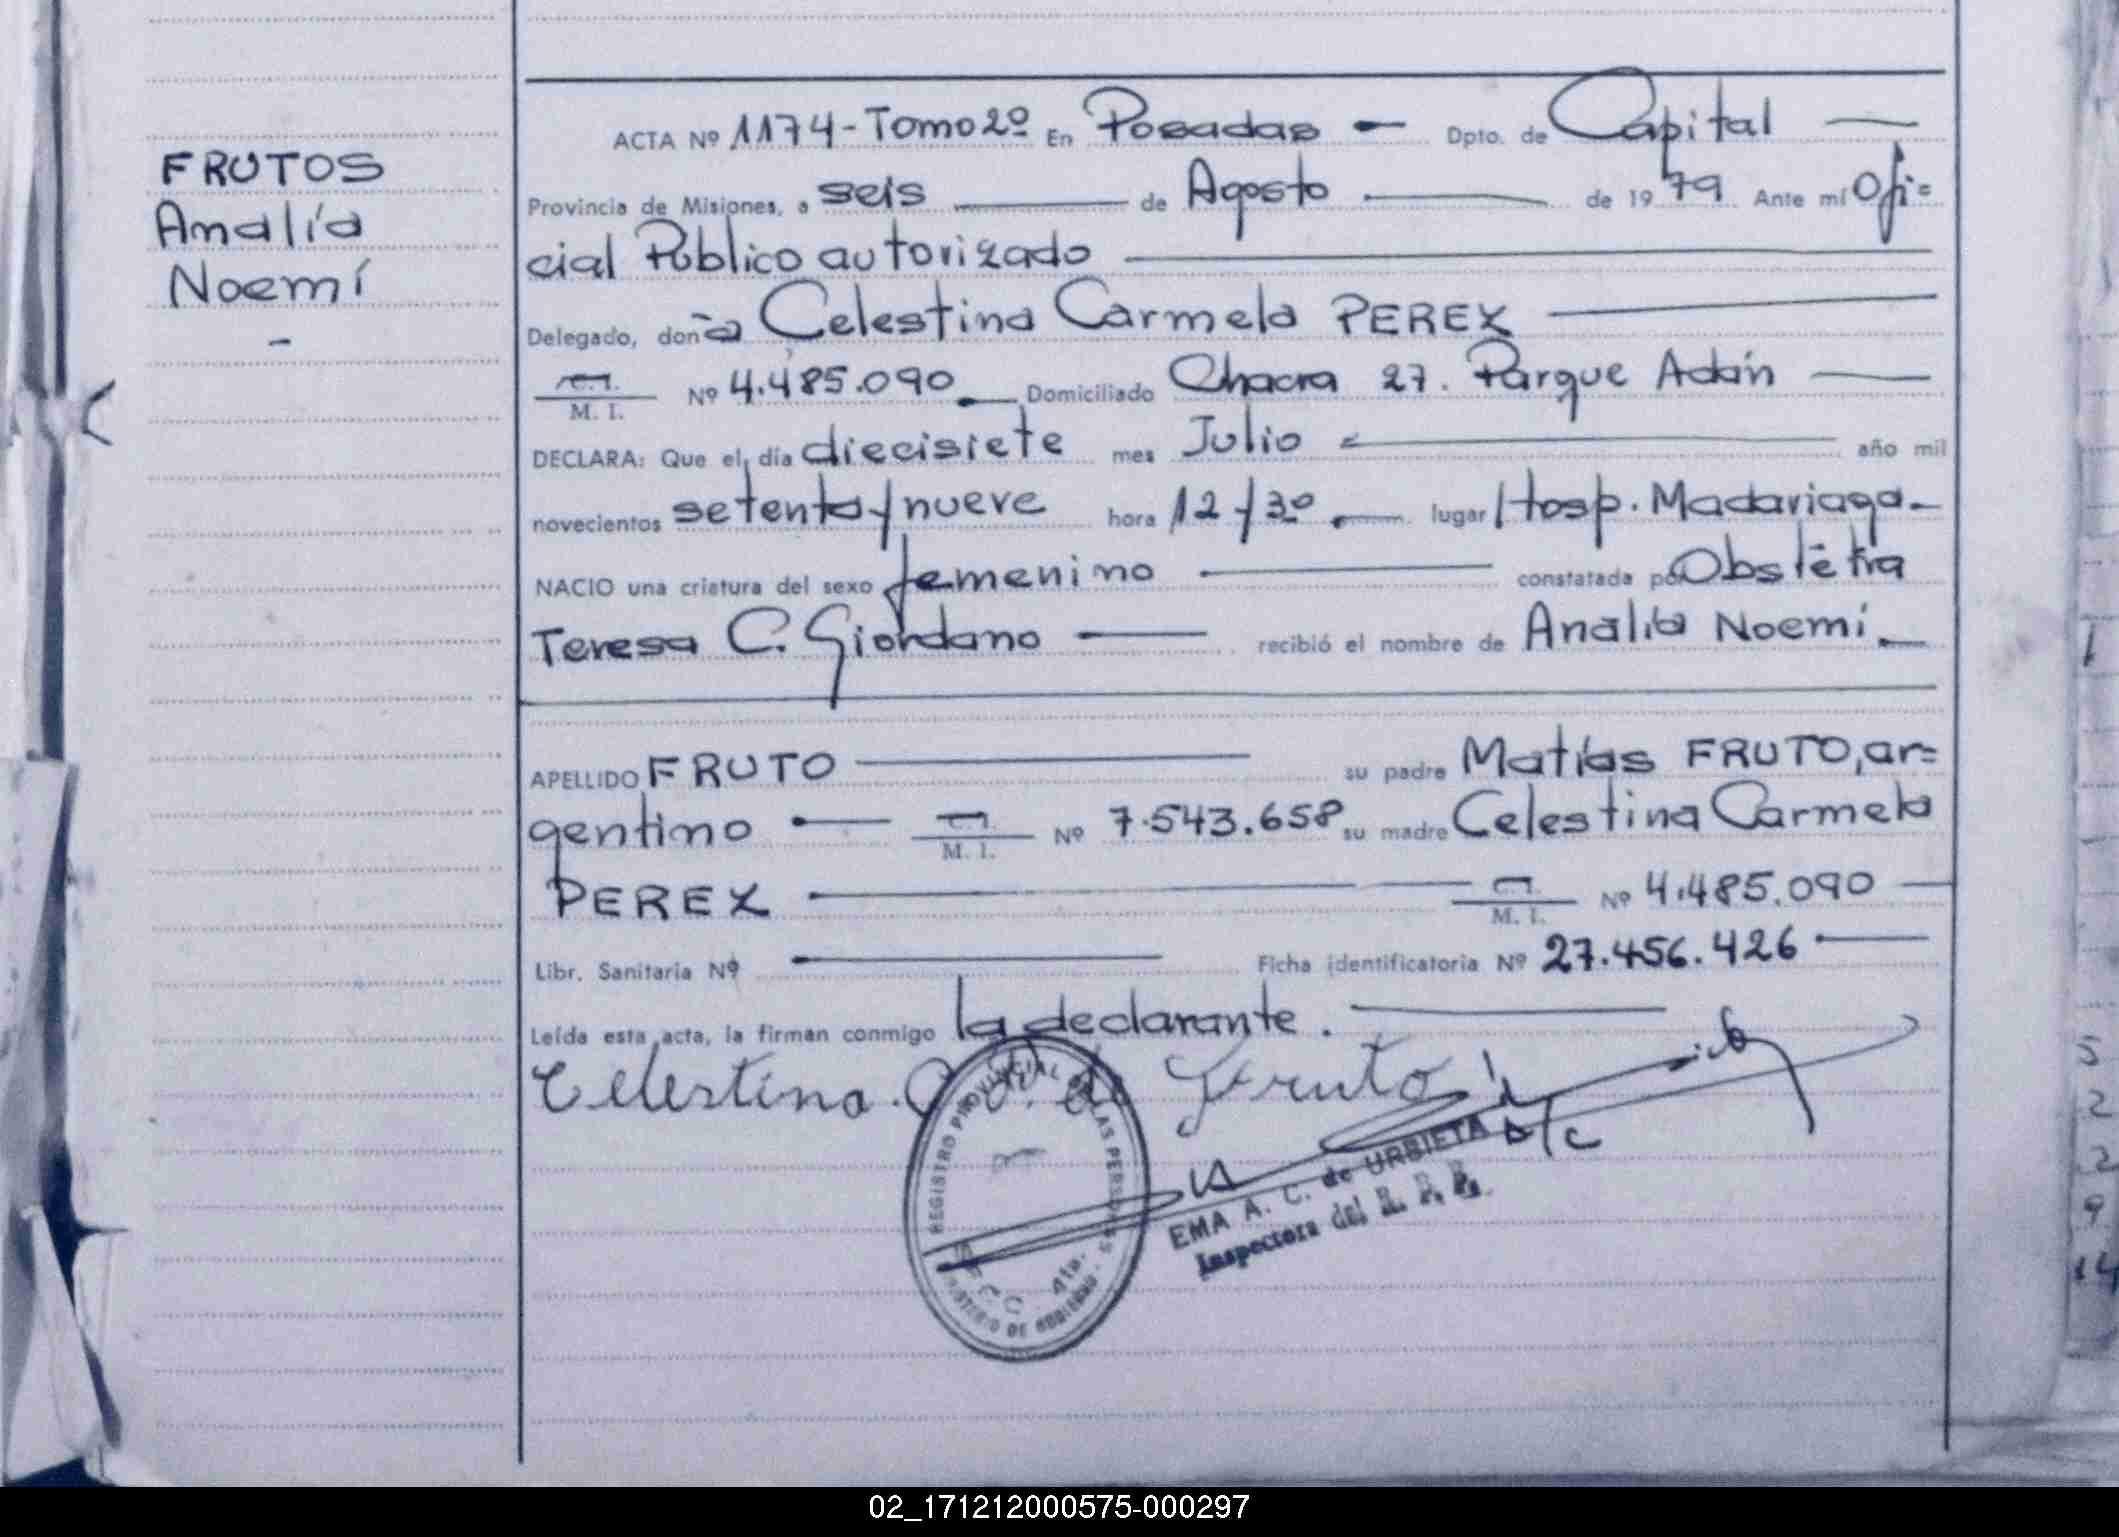 FRUTOS
Analía
Noemí
-
ACTA Nº 1174-Tomo 2º En Posadas — Dpto. de Capital —
Provincia de Misiones, a seis — de Agosto — de 1979 Ante mí Ofi=
cial Público autorizado —
Delegado, donña Celestina Carmela PEREX —
M. I. Nº 4.485.090 — Domiciliado Chacra 27. Parque Adán —
DECLARA: Que el día diecisiete mes Julio — año mil
novecientos setenta y nueve hora 12 y 30 — lugar Hosp. Madariaga.-
NACIO una criatura del sexo femenino — constatada por Obstétra
Teresa C. Giordano — recibió el nombre de Analía Noemí. —
APELLIDO FRUTO — su padre Matías FRUTO, ar=
gentino — M. I. Nº 7.543.658 su madre Celestina Carmela
PEREX — M. I. Nº 4.485.090 —
Libr. Sanitaria Nº — Ficha identificatoria Nº 27.456.426 —
Leída esta acta, la firman conmigo la declarante. —
Celestina. C de Fruto
REGISTRO PROVINCIAL DE LAS PERSONAS
SECC. 4ta.
MINISTERIO DE GOBIERNO
a/c
EMA A. C. de URBIETA
Inspectora del R. P. P.
1
5
2
2
9
14
02_171212000575-000297